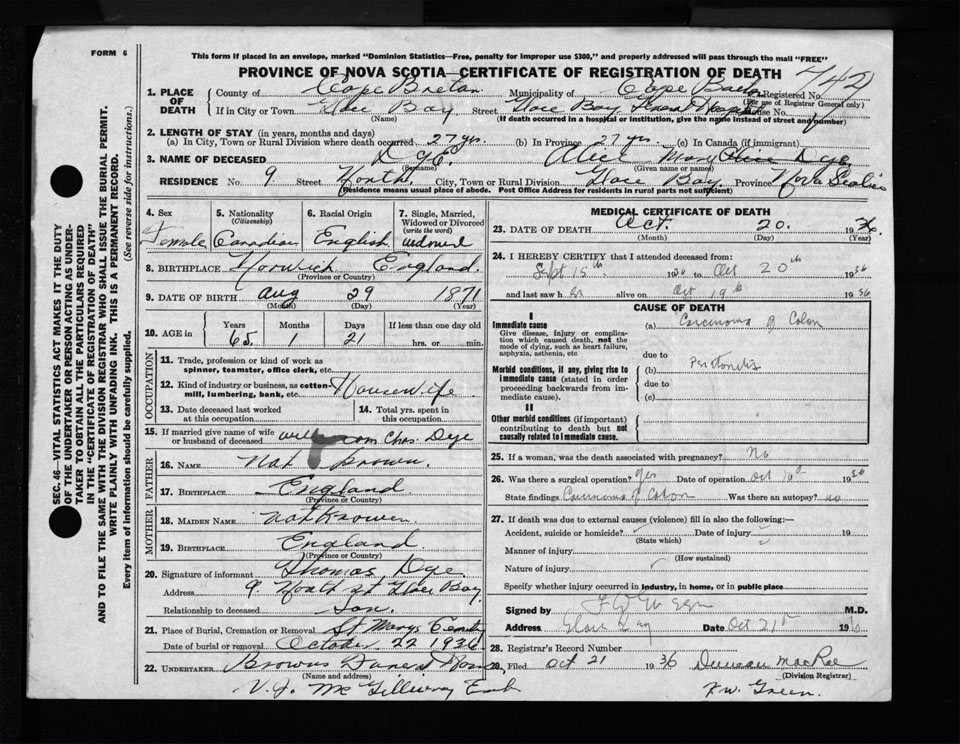 FORM 6
This form if placed in an envelope, marked "Dominion Statistics—Free, penalty for improper use $300," and properly addressed will pass through the mail "FREE"
PROVINCE OF NOVA SCOTIA—CERTIFICATE OF REGISTRATION OF DEATH
1. PLACE OF DEATH
County of Cape Breton Municipality of Cape Registered No. 442
(For use of Registrar General only)
If in City or Town Glace Bay Street Glace Bay House No.
(Name) (If death occurred in a hospital or institution, give the name instead of street and number)
2. LENGTH OF STAY (in years, months and days)
(a) In City, Town or Rural Division where death occurred 27 yrs. (b) In Province 27 yrs. (c) In Canada (if immigrant)
3. NAME OF DECEASED Dye. Alice Mary Alice Dye
(Surname) (Given name or names)
RESIDENCE No. 9 Street North. City, Town or Rural Division Glace Bay. Province Nova Scotia
(Residence means usual place of abode. Post Office Address for residents in rural parts not sufficient)
4. Sex Female
5. Nationality (Citizenship) Canadian
6. Racial Origin English
7. Single, Married, Widowed or Divorced (write the word) widowed
8. BIRTHPLACE Norwich England.
(Province or Country)
9. DATE OF BIRTH Aug 29 1871
(Month) (Day) (Year)
10. AGE in Years 65 Months 1 Days 21 If less than one day old hrs. or min.
OCCUPATION
11. Trade, profession or kind of work as spinner, teamster, office clerk, etc.
12. Kind of industry or business, as cotton-mill, lumbering, bank, etc. Housewife
13. Date deceased last worked at this occupation
14. Total yrs. spent in this occupation
15. If married give name of wife or husband of deceased William Chas. Dye
FATHER
16. NAME Not Known.
17. BIRTHPLACE England
(Province or Country)
MOTHER
18. MAIDEN NAME Not Known
19. BIRTHPLACE England.
(Province or Country)
20. Signature of informant Thomas Dye.
Address 9. North st Glace Bay
Relationship to deceased Son.
21. Place of Burial, Cremation or Removal St Marys
Date of burial or removal October 22 1936
22. UNDERTAKER Browns Funeral
(Name and address)
V. J. McGillivray
MEDICAL CERTIFICATE OF DEATH
23. DATE OF DEATH Oct. 20. 1936
(Month) (Day) (Year)
24. I HEREBY CERTIFY that I attended deceased from:
Sept 15th 1936 to Oct 20th 1936
and last saw her alive on Oct 19th 1936
CAUSE OF DEATH
I
Immediate cause
Give disease, injury or complication which caused death, not the mode of dying, such as heart failure, asphyxia, asthenia, etc
(a) Carcinoma of Colon
due to
Morbid conditions, if any, giving rise to immediate cause (stated in order proceeding backwards from immediate cause).
(b) Peritonitis
due to
(c)
II
Other morbid conditions (if important) contributing to death but not causally related to immediate cause.
25. If a woman, was the death associated with pregnancy? No
26. Was there a surgical operation? yes Date of operation Oct 16th 1936
State findings Carcinoma of Colon Was there an autopsy? no
27. If death was due to external causes (violence) fill in also the following:—
Accident, suicide or homicide? Date of injury 19
(State which)
Manner of injury
(How sustained)
Nature of injury
Specify whether injury occurred in industry, in home, or in public place
Signed by M.D.
Address Glace Bay Date Oct 21st 193
28. Registrar's Record Number
29. Filed Oct 21 1936 Duncan MacRae
(Division Registrar)
F. W. Green.
SEC. 46—VITAL STATISTICS ACT MAKES IT THE DUTY
OF THE UNDERTAKER OR PERSON ACTING AS UNDER-
TAKER TO OBTAIN ALL THE PARTICULARS REQUIRED
IN THE "CERTIFICATE OF REGISTRATION OF DEATH"
AND TO FILE THE SAME WITH THE DIVISION REGISTRAR WHO SHALL ISSUE THE BURIAL PERMIT.
WRITE PLAINLY WITH UNFADING INK. THIS IS A PERMANENT RECORD.
Every item of information should be carefully supplied. (See reverse side for instructions.)